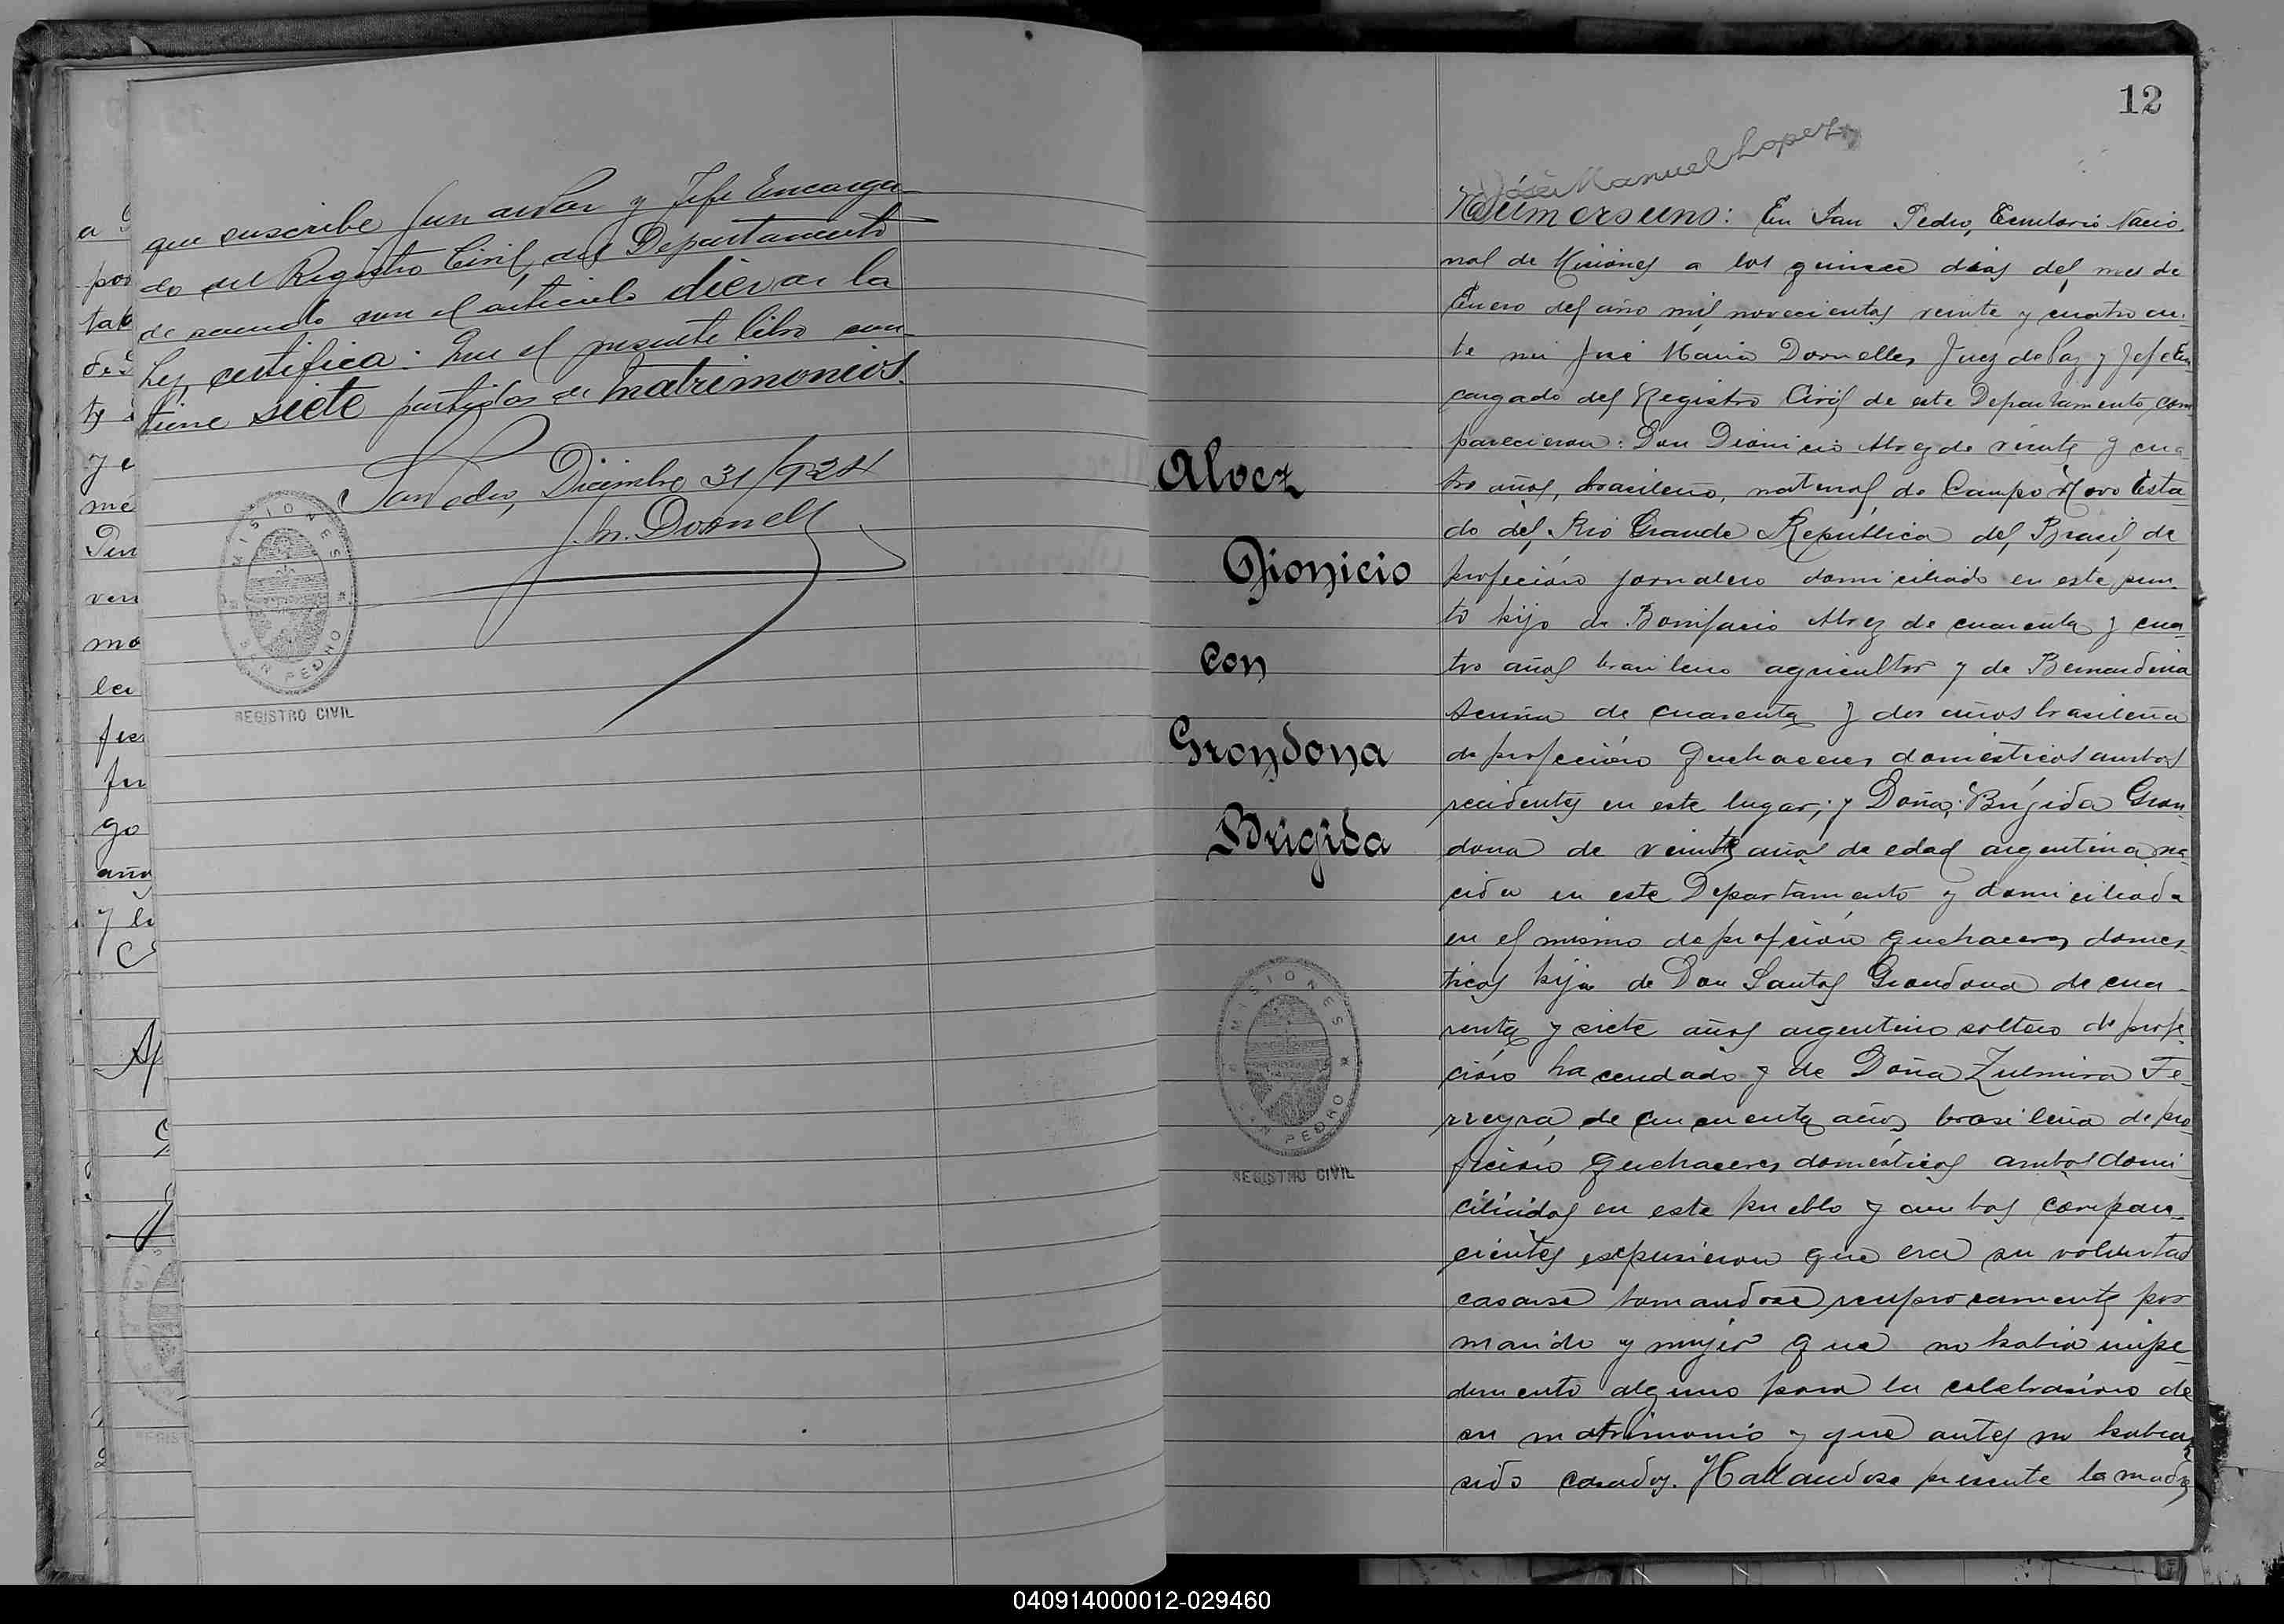 que suscribe Juez de Paz y Jefe Encarga-
do del Registro Civil del Departamento
de acuerdo con el artículo diez de la
Ley, certifica: Que el presente libro con-
tiene siete partidas de matrimonios.
San Pedro, Diciembre 31/924
J. M. Dornell
MISIONES
SAN PEDRO
REGISTRO CIVIL
12
José Manuel Lopez
Número uno: En San Pedro, Territorio Nacio-
nal de Misiones a los quince dias del mes de
Enero del año mil novecientos veinte y cuatro an-
te mi José Maria Dornelles Juez de Paz y Jefe En
cargado del Registro Civil de este Departamento, com
parecieron: Don Dionicio Alvez de veinte y cua
tro años, brasileño, natural de Campo Novo Esta-
do del Rio Grande República del Brasil, de
profeción jornalero domiciliado en este pun-
to hijo de Bonifacio Alvez de cuarenta y cua-
tro años brasilero agricultor y de Bernardina
de cuarenta y dos años brasileña
de profeción quehaceres domésticos ambos
recidentes en este lugar; y Doña: Brígida Gron
dona de veinte años de edad argentina na-
cida en este Departamento y domiciliada
en el mismo de profeción quehaceres domes-
ticos hija de Don Santos Grondona de cua-
renta y siete años argentino soltero de profe-
ción hacendado y de Doña Zulmira Fe-
rreyra de cincuenta años brasileña de pro-
feción quehaceres domésticos ambos domi-
ciliados en este pueblo y ambos compare-
cientes expusieron que era su voluntad
casarse tomandose reciprocamente por
marido y mujer que no habia impe-
dimento alguno para la celebración de
su matrimonio y que antes no habian
sido casados. Hallandose presente la madre
Alvez
Dionicio
con
Grondona
Brigida
MISIONES
SAN PEDRO
REGISTRO CIVIL
040914000012-029460